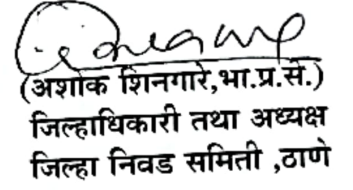 (अशोक शिनगारे,भा.प्र.से.)
जिल्हाधिकारी तथा अध्यक्ष
जिल्हा निवड समिती ,ठाणे